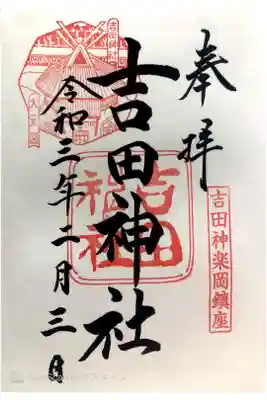 奉拝
吉田神楽岡鎮座
吉田神社
吉田神社
令和三年二月三日